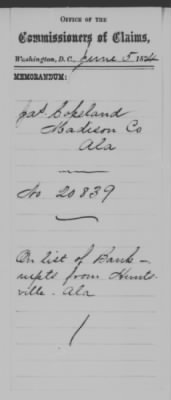 OFFICE OF THE
Commissioners of Claims,
Washington, D.C., June 5, 1874
MEMORANDUM:
Jas. Copeland
Madison Co
Ala
No 20839
On list of Bank-
rupts from Hunts-
ville. Ala